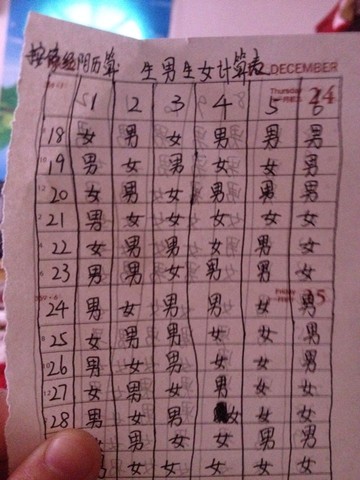 阴历算 生男生女计算表 DECEMBER
Thursday 24
1 2 3 4 5 6
18 女 男 女 男 男 男
19 男 女 男 女 女 男
20 女 男 女 男 男 男
21 男 女 女 女 女 女
22 女 男 男 女 男 女
23 男 男 女 男 男 女
24 男 女 男 男 女 男
25 女 男 男 女 女 男
26 男 女 男 女 女 男
27 女 男 女 男 女 女
28 男 女 男 女 女 女
女 男 女 女 男 男
男 女 女 女 女 女